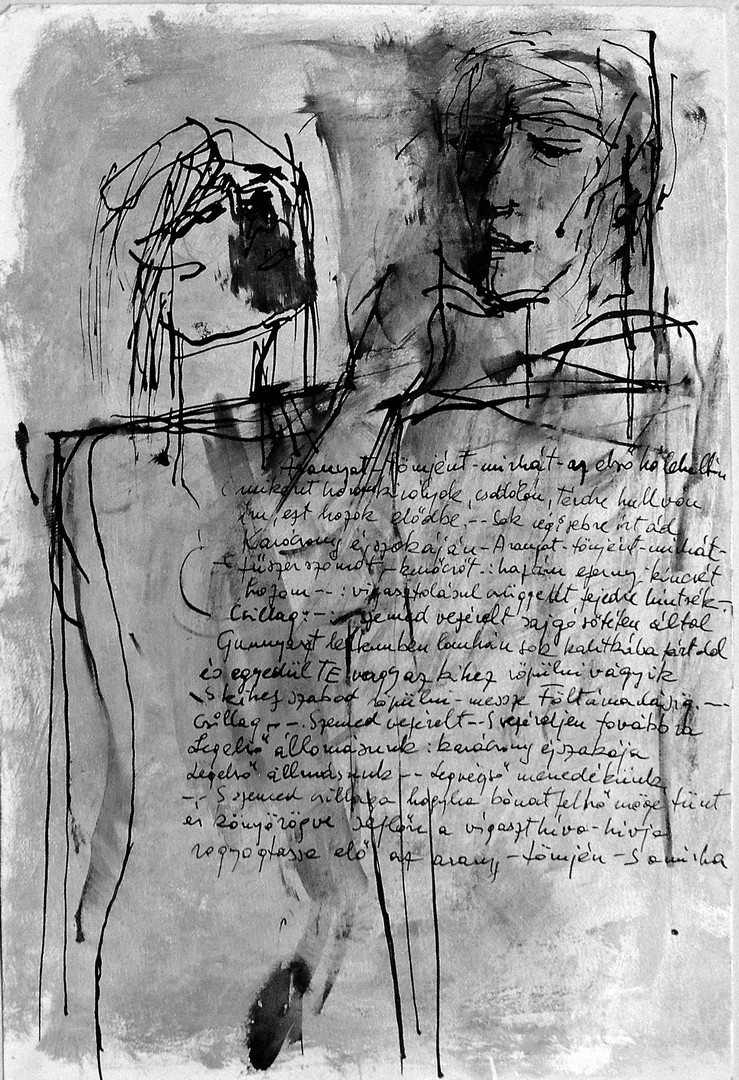 Aranyat-tömjént-mirhát-az első hó
miként három
ím, ezt hozok elődbe.--Sok égő sebre írt ád
Karácsony éjszakáján-Aranyat-tömjént-mirhát-
fűszerszámot-kenőcsöt.: ezernyi kincsét
hozom--: vigasztalásul csüggedt fejedre hintsék-
Csillag:-:-szemed vezérelt sajgó sötéten által
Gunnyaszt lelkemben sok kalitkába zárt dal
és egyedül TE vagy az kihez röpülni vágyik
S kihez szabad röpülni-messze Föltámadásig.---
Csillag --.Szemed vezérelt--S vezéreljen tovább is
Legelső állomásunk: karácsony éjszakája
Legelső állomásunk--Legvégső menedékünk
--S szemed csillaga hogyha bánat felhő möge tűnt
és könyörögve a vigaszt híva-hívja
ragyogtassa elő az arany-tömjén-S a mirha